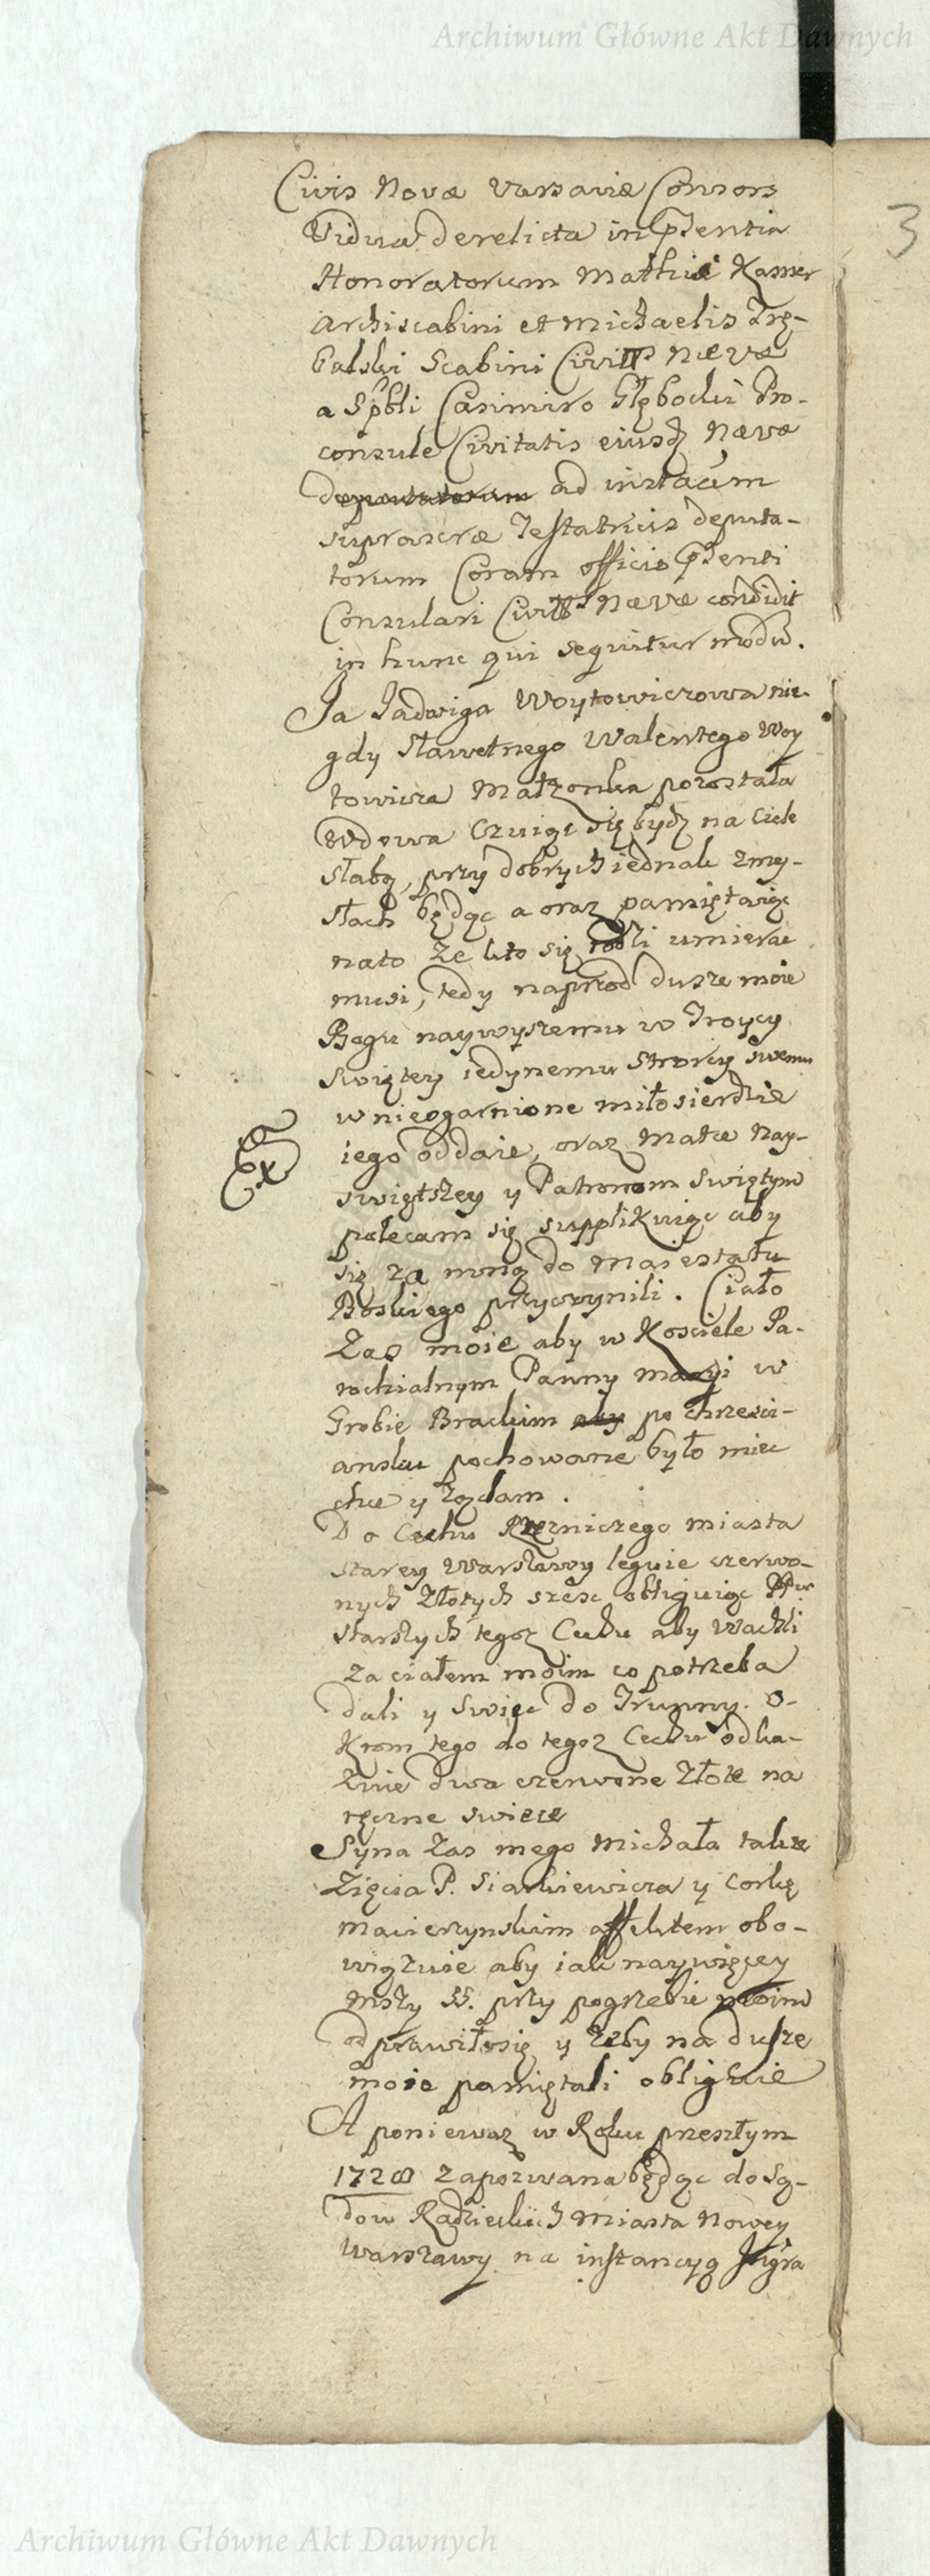 Archiwum Główne Akt Dawnych
3
Civis Novæ Varsaviæ Consors
Vidua derelicta in Pñtia
Honoratorum Mathiæ Kasner
Archiscabini et Michaelis Trę-
balski Scabini Civitts Nævæ
a Spbli Casimiro Głębocki Pro-
consule Civitatis eiusd Nævæ
ad instãm
suprascræ Testatricis deputa-
torum Coram officio Pñti
Consulari Civitts Nævæ condidit
in hunc qui sequitur modũ.
Ja Jadwiga Woytowiczowa nie-
gdy Sławetnego Walentego Woy
towicza Małzonka pozostała
Wdowa czuiąc się bydz na ciele
słabą, przy dobrych iednak zmy-
słach będąc a oraz pamiętaiąc
nato ze kto się rodzi umierac
musi, tedy naprzod dusze moie
Bogu naywyszemu w Troycy
Swiętey iedynemu Stworcy swemu
w nieogarnione miłosierdzie
iego oddaie, oraz Matce Nay-
swiętszey y Patronom Swiętym
polecam się supplikuiąc aby
się za mną do Maiestatu
Boskiego przyczynili. Ciało
Zas moie aby w Kosciele Pa-
rochialnym Panny Maryi w
Grobie Brackim aby po chrzesci-
ansku pochowane było miec
chce y ządam.
Do Cechu Rzezniczego miasta
Starey Warszawy leguie czerwo-
nych Złotych szesc obliguiąc
starszych tegoz Cechu aby
za ciałem moim co potrzeba
dali y swiec do Trunny. O-
Krom tego do tegoz Cechu odka-
zuie dwa czerwone Złote na
ręczne swiece
Syna zas mego Michała takze
Zięcia P. Siarkiewicza y corkę
macierzynskim affektem obo-
wiązuie aby iak naywięcey
Mszy SS. przy pogrzebie moim
odprawiłosię y zeby na dusze
moie pamiętali obliguie
A poniewaz w Roku przeszłym
1728 zapozwana będąc do Są-
dow Radzieckich Miasta Nowey
Warszawy na instancyą
Archiwum Główne Akt Dawnych